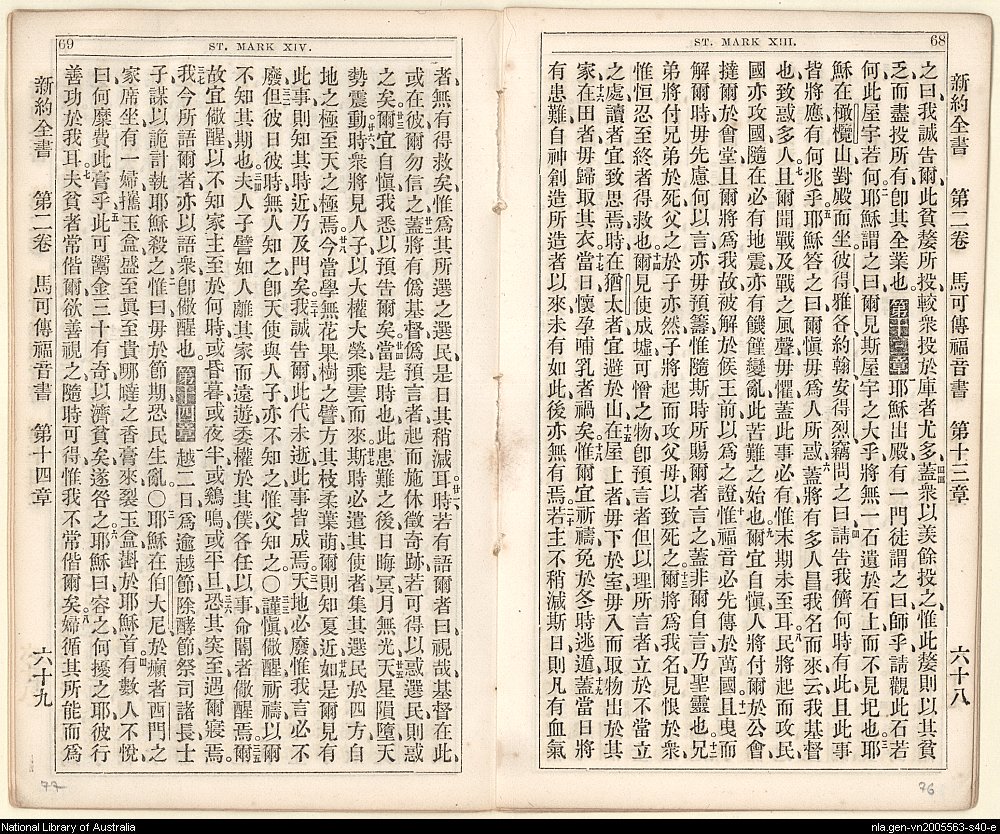 ST. MARK XIII.
68
新約全書 第二卷 馬可傳福音書 第十三章 六十八
之曰我誠告爾此貧嫠所投較衆投於庫者尤多蓋衆以羨餘投之惟此嫠則以其貧
乏而盡投所有卽其全業也 第十三章 耶穌出殿有一門徒謂之曰師乎請觀此石若
何此屋宇若何耶穌謂之曰爾見斯屋宇之大乎將無一石遺於石上而不見圮也耶
穌在橄欖山對殿而坐彼得雅各約翰安得烈竊問之曰請告我儕何時有此且此事
皆將應有何兆乎耶穌答之曰爾愼毋爲人所惑蓋將有多人冒我名而來云我基督
也致惑多人且爾聞戰及戰之風聲毋懼蓋此事必有惟末期未至耳民將起而攻民
國亦攻國隨在必有地震亦有饑饉變亂此苦難之始也爾宜自愼人將付爾於公會
撻爾於會堂且爾將爲我故被解於侯王前以爲之證惟福音必先傳於萬國且曳而
解爾時毋先慮何以言亦毋預籌惟隨斯時所賜者言之蓋非爾自言乃聖靈也兄
弟將付兄弟於死父之於子亦然子將起而攻父母以致死之爾將爲我名見恨於衆
惟恒忍至終者得救也爾見使成墟可憎之物卽預言者但以理所言者立於不當立
之處讀者宜致思焉時在猶太者宜避於山在屋上者毋下於室毋入而取物出於其
家在田者毋歸取其衣當日懷孕哺乳者禍矣惟爾宜祈禱免於冬時逃遁蓋當日將
有患難自神創造所造者以來未有如此後亦無有焉若主不稍減斯日則凡有血氣
76
69
ST. MARK XIV.
者無有得救矣惟爲其所選之選民是日其稍減耳時若有語爾者曰視哉基督在此
或在彼爾勿信之蓋將有僞基督僞預言者起而施休徵奇跡若可得以惑選民則惑
之矣爾宜自愼我悉以預告爾矣當是時也此患難之後日晦冥月無光天星隕墮天
勢震動時衆將見人子以大權大榮乘雲而來斯時必遣其使者集其選民於四方自
地之極至天之極焉今當學無花果樹之譬方其枝柔葉萌爾則知夏近如是爾見有
此事則知其時近乃及門矣我誠告爾此代未逝此事皆成焉天地必廢惟我言必不
廢但彼日彼時無人知之卽天使與人子亦不知之惟父知之○謹愼儆醒祈禱以爾
不知其期也夫人子譬如人離其家而遠遊委權於其僕各任以事命閽者儆醒焉爾
故宜儆醒以不知家主至於何時或昏暮或夜半或鷄鳴或平旦恐其突至遇爾寢焉
我今所語爾者亦以語衆卽儆醒也 第十四章 越二日爲逾越節除酵節祭司諸長士
子謀以詭計執耶穌殺之惟曰毋於節期恐民生亂○耶穌在伯大尼於癩者西門之
家席坐有一婦攜玉盒盛至眞至貴哪噠之香膏來裂玉盒斟於耶穌首有數人不悅
曰何縻費此膏乎此可鬻金三十有奇以濟貧矣遂咎之耶穌曰容之何擾之耶彼行
善功於我耳夫貧者常偕爾欲善視之隨時可得惟我不常偕爾矣婦循其所能而爲
新約全書 第二卷 馬可傳福音書 第十四章 六十九
77
National Library of Australia
nla.gen-vn2005563-s40-e